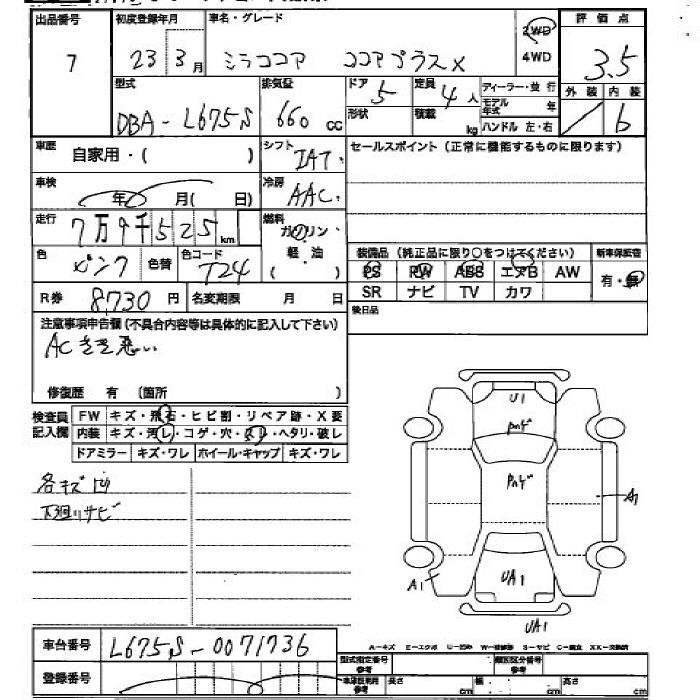 出品番号 初度登録年月 車名・グレード 評価点
7 23年 3月 ミラココア ココアプラスX 2WD 4WD 3.5
型式 排気量 ドア 5 定員 4人 ディーラー・並行 外装 内装
DBA-L675S 660cc 形状 積載 kg モデル年式 年 ハンドル 左・右 b
車歴 自家用・( ) シフト IAT セールスポイント（正常に機能するものに限ります）
車検 年 月( 日) 冷房 AAC
走行 7万9千525km 燃料 ガソリン・軽・油 ( )
色 ピンク 色替 色コード T24 装備品（純正品に限り○をつけてください） 新車保証書
PS PW ABS エアB AW 有・無
R券 8,730円 名変期限 月 日 SR ナビ TV カワ
注意事項申告欄（不具合内容等は具体的に記入して下さい） 後日品
ACきき悪い
修復歴 有 （箇所 ）
検査員記入欄 FW キズ・飛石・ヒビ割・リペア跡・X要
内装 キズ・汚レ・コゲ・穴・スリ・ヘタリ・破レ
ドアミラー キズ・ワレ ホイール・キャップ キズ・ワレ
各キズ凹
下廻リサビ
U1
A1
A1
UA1
UA1
車台番号 L675S-0071736
A－キズ E－エクボ U－凹み W－補修跡 S－サビ C－腐食 XX－交換済
登録番号 型式指定番号 参考 類別区分番号 参考
長さ cm 幅 cm 高さ cm